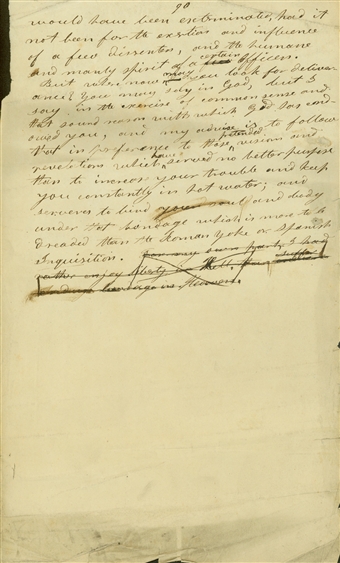 90
would have been exterminated, had it
not been for the exertion and influence
of a few dissenters, and the humane
and manly spirit of a certain officer.
But when now may you look for deliver
ance? you may say in God, but I
say in the exercise of common sense and
that sound reason with which God has end
owed you, and my advise is to follow
that in preference to those pretended visions and
revelations which have served no better purpose
than to increas your trouble and keep
you constantly in hot water; and
serveres to bind your soul and body
under that bondage which is more to be
dreaded than the Roman yoke or Spanish
Inquisition. For my own part, I had
rather enjoy liberty in Hell, than suffer
bondage in Heaven.